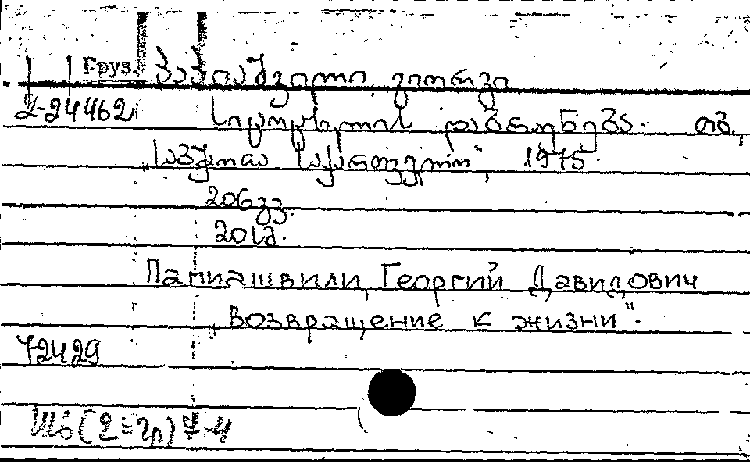 Груз. პაპიაშვილი გიორგი
2-24462 სიცოცხლის დაბრუნება. თბ.,
„საბჭოთა საქართველო", 1975.
206გვ.
Папиашвили, Георгий Давидович
„Возвращение к жизни".
72429